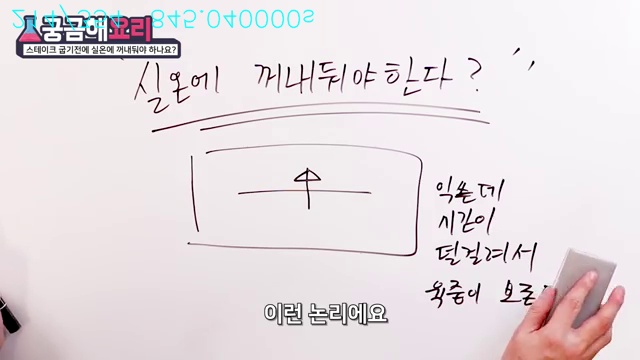 845.040000s
궁금해요리
스테이크 굽기전에 실온에 꺼내둬야 하나요?
실온에 꺼내둬야한다?
익는데
시간이
덜걸려서
육즙이 보존
이런 논리에요